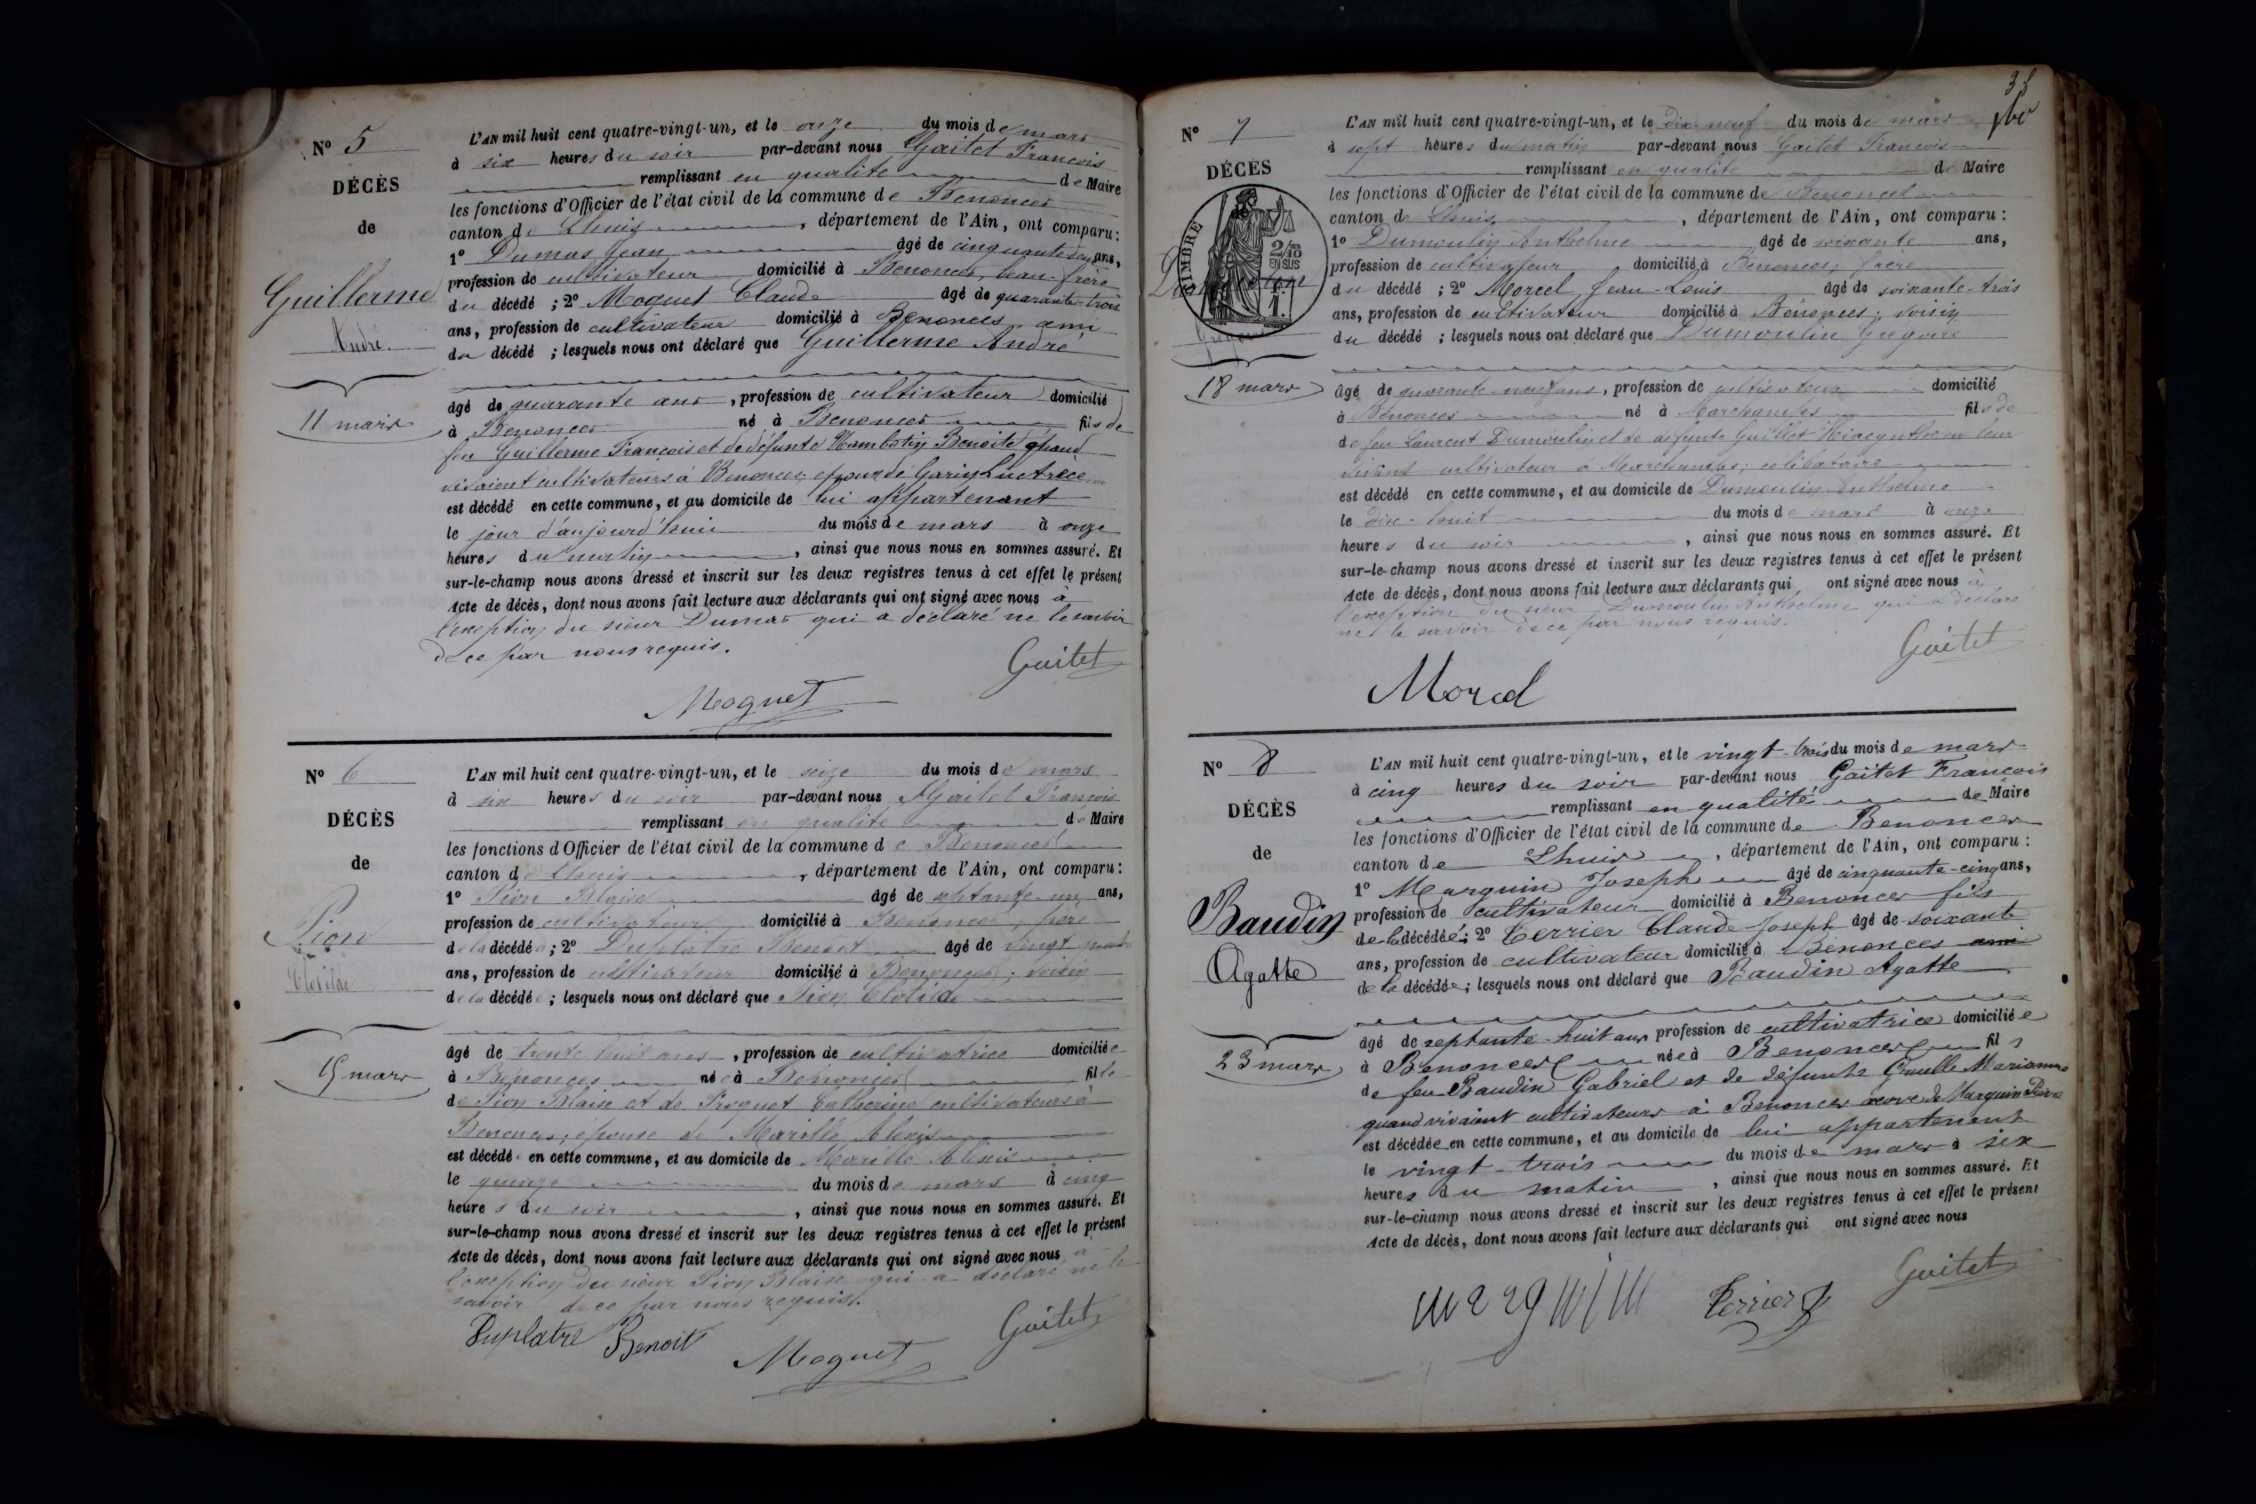 N° 5
DÉCÈS
de
Guillerme
André
11 mars
L'AN mil huit cent quatre-vingt-un, et le onze du mois de mars
à six heures du soir par-devant nous Goitet François
remplissant en qualité de Maire
les fonctions d'Officier de l'état civil de la commune de Benonces
canton de Lhuis, département de l'Ain, ont comparu :
1° Dumas Jean âgé de cinquante ans,
profession de cultivateur domicilié à Benonces, beau-frère
du décédé ; 2° Moguet Claude âgé de quarante-trois
ans, profession de cultivateur domicilié à Benonces, ami
du décédé ; lesquels nous ont déclaré que Guillerme André
âgé de quarante ans, profession de cultivateur domicilié
à Benonces né à Benonces fils de
feu Guillerme François et de défunte Benoite quand
vivaient cultivateurs à Benonces, époux de
est décédé en cette commune, et au domicile de lui appartenant
le jour d'aujourd'hui du mois de mars à onze
heures du matin, ainsi que nous nous en sommes assuré. Et
sur-le-champ nous avons dressé et inscrit sur les deux registres tenus à cet effet le présent
Acte de décès, dont nous avons fait lecture aux déclarants qui ont signé avec nous à
l'exception du sieur Dumas qui a déclaré ne le savoir
de ce par nous requis.
Goitet
Moguet
N° 6
DÉCÈS
de
Pion
Clotilde
15 mars
L'AN mil huit cent quatre-vingt-un, et le seize du mois de mars
à six heures du soir par-devant nous Goitet François
remplissant en qualité de Maire
les fonctions d'Officier de l'état civil de la commune de Benonces
canton de Lhuis, département de l'Ain, ont comparu :
1° Pion Blaise âgé de septante-un ans,
profession de cultivateur domicilié à Benonces, père
de la décédée ; 2° Duplatre Benoit âgé de vingt
ans, profession de cultivateur domicilié à Benonces, voisin
de la décédée ; lesquels nous ont déclaré que Pion Clotilde
âgé de trente huit ans, profession de cultivatrice domiciliée
à Benonces née à Benonces fille
de Pion Blaise et de Catherine cultivateurs à
Benonces, épouse de Marillo Alexis
est décédée en cette commune, et au domicile de Marillo Alexis
le quinze du mois de mars à cinq
heures du soir, ainsi que nous nous en sommes assuré. Et
sur-le-champ nous avons dressé et inscrit sur les deux registres tenus à cet effet le présent
Acte de décès, dont nous avons fait lecture aux déclarants qui ont signé avec nous à
l'exception du sieur Pion Blaise qui a déclaré ne le
savoir de ce par nous requis.
Duplatre Benoit
Moguet
Goitet
N° 7
DÉCÈS
TIMBRE
2/10
EN SUS
18 mars
L'AN mil huit cent quatre-vingt-un, et le dix-neuf du mois de mars
à sept heures du matin par-devant nous Goitet François
remplissant en qualité de Maire
les fonctions d'Officier de l'état civil de la commune de Benonces
canton de Lhuis, département de l'Ain, ont comparu :
1° Dumoulin Anthelme âgé de soixante ans,
profession de cultivateur domicilié à Benonces, frère
du décédé ; 2° Morel Jean-Louis âgé de soixante-trois
ans, profession de cultivateur domicilié à Benonces, voisin
du décédé ; lesquels nous ont déclaré que Dumoulin Grégoire
âgé de quarante-neuf ans, profession de cultivateur domicilié
à Benonces né à Marchamps fils de
de feu Laurent Dumoulin et de défunte
vivant cultivateur à Marchamps, célibataire
est décédé en cette commune, et au domicile de Dumoulin Anthelme
le dix-huit du mois de mars à onze
heures du soir, ainsi que nous nous en sommes assuré. Et
sur-le-champ nous avons dressé et inscrit sur les deux registres tenus à cet effet le présent
Acte de décès, dont nous avons fait lecture aux déclarants qui ont signé avec nous à
l'exception du sieur Dumoulin Anthelme qui a déclaré
ne le savoir de ce par nous requis.
Goitet
Morel
N° 8
DÉCÈS
de
Baudin
Agatte
23 mars
L'AN mil huit cent quatre-vingt-un, et le vingt-trois du mois de mars
à cinq heures du soir par-devant nous Goitet François
remplissant en qualité de Maire
les fonctions d'Officier de l'état civil de la commune de Benonces
canton de Lhuis, département de l'Ain, ont comparu :
1° Marguin Joseph âgé de cinquante-cinq ans,
profession de cultivateur domicilié à Benonces fils
de la décédée ; 2° Terrier Claude Joseph âgé de soixante
ans, profession de cultivateur domicilié à Benonces ami
de la décédée ; lesquels nous ont déclaré que Baudin Agatte
âgé de septante-huit ans profession de cultivatrice domiciliée
à Benonces née à Benonces fil
de feu Baudin Gabriel et de défunte Marianne
quand vivaient cultivateurs à Benonces veuve de Marguin
est décédée en cette commune, et au domicile de lui appartenant
le vingt-trois du mois de mars à six
heures du matin, ainsi que nous nous en sommes assuré. Et
sur-le-champ nous avons dressé et inscrit sur les deux registres tenus à cet effet le présent
Acte de décès, dont nous avons fait lecture aux déclarants qui ont signé avec nous
Goitet
Terrier